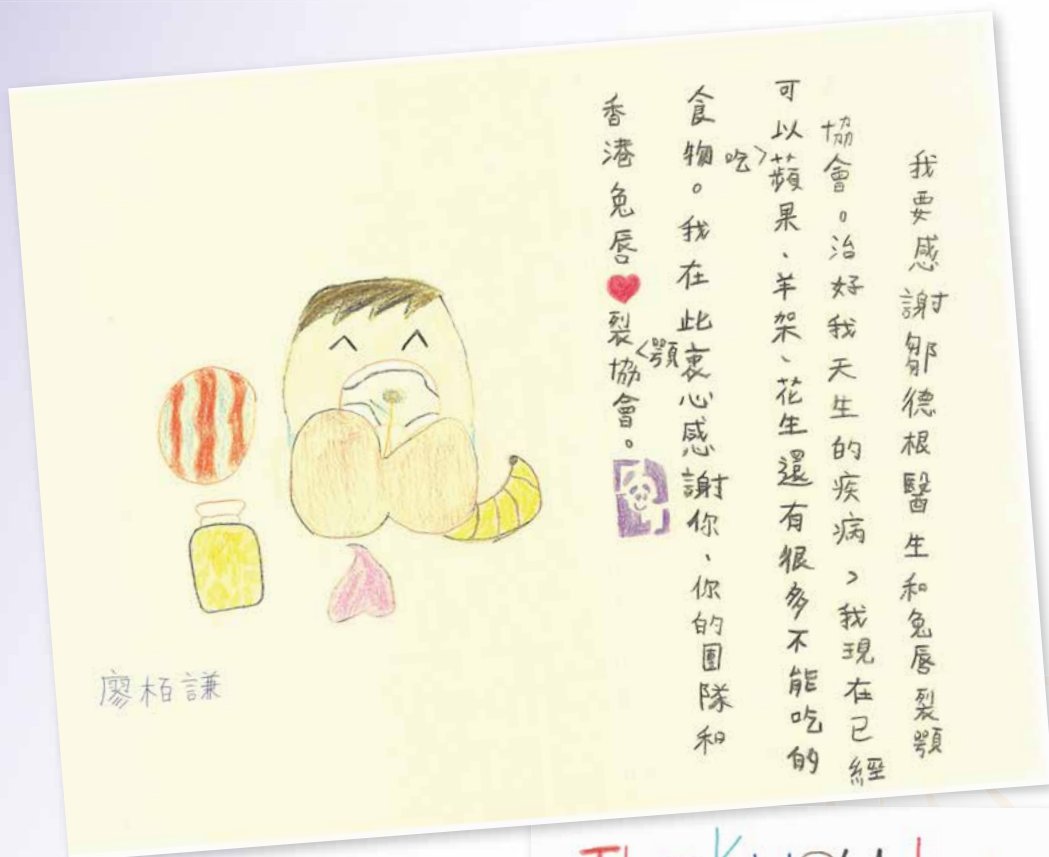 我要感謝鄒德根醫生和兔唇裂顎
協會。治好我天生的疾病,我現在已經
可以吃蘋果、羊架、花生還有很多不能吃的
食物。我在此衷心感謝你、你的團隊和
香港兔唇❤裂顎協會。
廖栢謙
Thank you